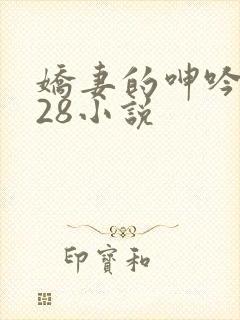 嬌妻的呻吟
28小說
印寶和